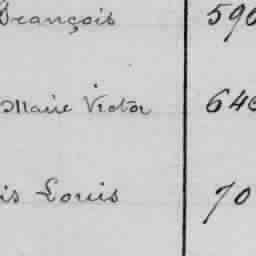 François 590
Marie Victor 640
is Louis 70